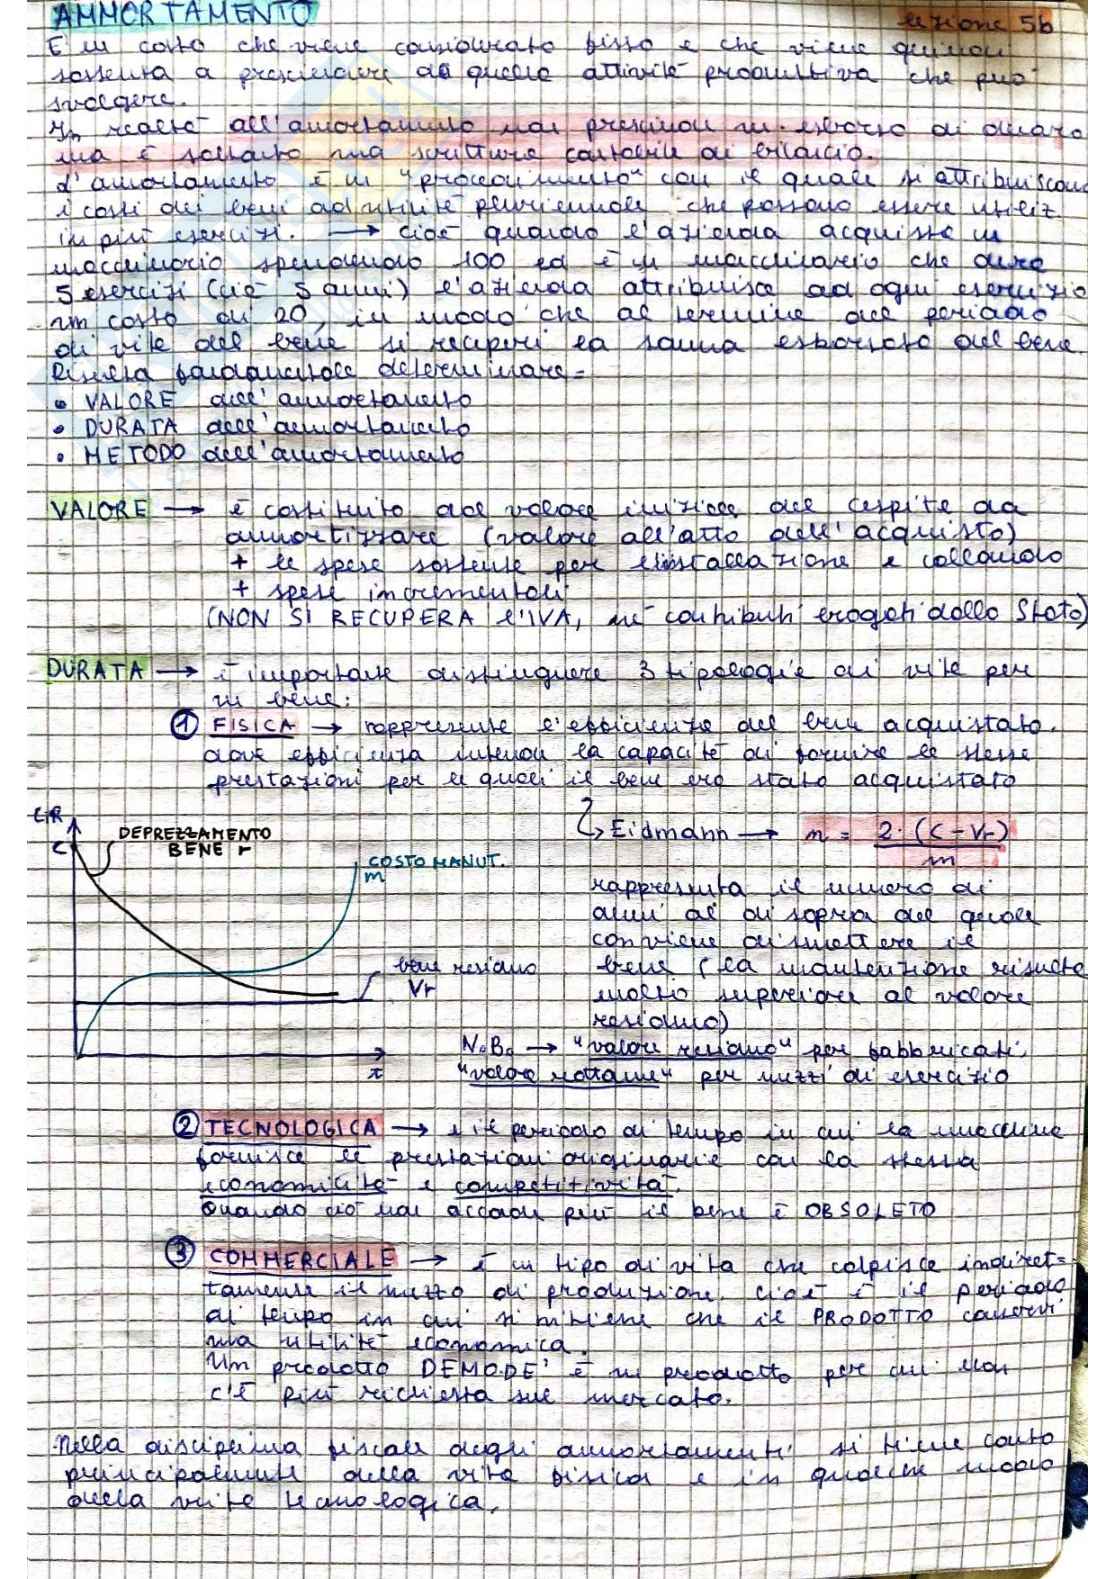 AMMORTAMENTO
lezione 5b
È un costo che viene considerato fisso e che viene quindi
sostenuto a prescindere da quella attività produttiva che può
svolgere.
In realtà all'ammortamento non prescinde un esborso di denaro
ma è soltanto una scrittura contabile di bilancio.
L'ammortamento è un "procedimento" con il quale si attribuiscono
i costi dei beni ad utilità pluriennale che possono essere utiliz.
in più esercizi. → cioè quando l'azienda acquista un
macchinario spendendo 100 ed è un macchinario che dura
5 esercizi (cioè 5 anni) l'azienda attribuisce ad ogni esercizio
un costo di 20, in modo che al termine del periodo
di vita del bene si recuperi la somma esborsata del bene.
Risulta fondamentale determinare=
• VALORE dell'ammortamento
• DURATA dell'ammortamento
• METODO dell'ammortamento
VALORE → è costituito dal valore iniziale del cespite da
ammortizzare (valore all'atto dell'acquisto)
+ le spese sostenute per l'installazione e collaudo
+ spese incrementali
(NON SI RECUPERA l'IVA, né contributi erogati dallo Stato)
DURATA → è importante distinguere 3 tipologie di vita per
un bene:
① FISICA → rappresenta l'efficienza del bene acquistato.
dove efficienza intendo la capacità di fornire le stesse
prestazioni per le quali il bene era stato acquistato
C,R
C
DEPREZZAMENTO
BENE r
COSTO MANUT.
m
bene residuo
Vr
t
↳ Eidmann → n = 2·(C-Vr)
m
rappresenta il numero di
anni al di sopra del quale
conviene dismettere il
bene (la manutenzione risulta
molto superiore al valore
residuo)
N.B. → "valore residuo" per fabbricati.
"valore rottame" per mezzi di esercizio
② TECNOLOGICA → è il periodo di tempo in cui la macchina
fornisce le prestazioni originarie con la stessa
economicità e competitività.
Quando ciò non accade più il bene è OBSOLETO
③ COMMERCIALE → è un tipo di vita che colpisce indiret=
tamente il mezzo di produzione. cioè è il periodo
di tempo in cui si ritiene che il PRODOTTO conservi
una utilità economica.
Un prodotto DEMODE' è un prodotto per cui non
c'è più richiesta sul mercato.
Nella disciplina fiscale degli ammortamenti si tiene conto
principalmente della vita fisica e in qualche modo
quella vita tecnologica.